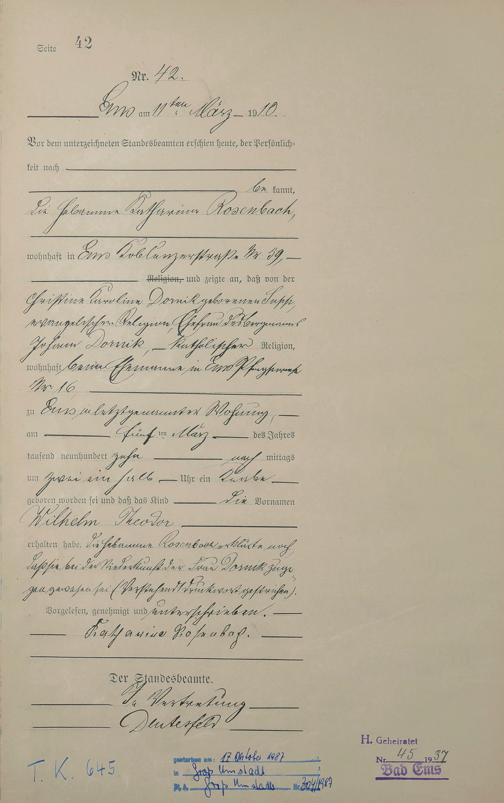 Seite 42
Nr. 42.
Ems am 11ten März 1910.
Vor dem unterzeichneten Standesbeamten erschien heute, der Persönlich-
keit nach
be kannt,
die Hebamme Katharina Rosenbach,
wohnhaft in Ems Koblenzerstraße Nr. 39,
Religion, und zeigte an, daß von der
Christine Karoline Dornik geborenen
evangelischer Religion, Ehefrau des Bergmanns
Johann Dornik, Katholischer Religion,
wohnhaft beim Ehemanne in Ems
Nr. 16
zu Ems in letztgenannter Wohnung,
am fünften März des Jahres
tausend neunhundert zehn nach mittags
um zwei ein halb Uhr ein Knabe
geboren worden sei und daß das Kind die Vornamen
Wilhelm Theodor
erhalten habe. Die Hebamme Rosenbach erklärte noch,
daß sie bei der Niederkunft der Frau Dornik Zuge-
gen gewesen sei (Vorstehend 1 Druckwort gestrichen).
Vorgelesen, genehmigt und unterschrieben.
Katharina Rosenbach.
Der Standesbeamte.
In Vertretung
gestorben am: 17. Oktober 1987
in Groß Umstadt
St. A. Groß Umstadt Nr. 304/1987
T. K. 645
H. Geheiratet
Nr. 45 1937
Bad Ems